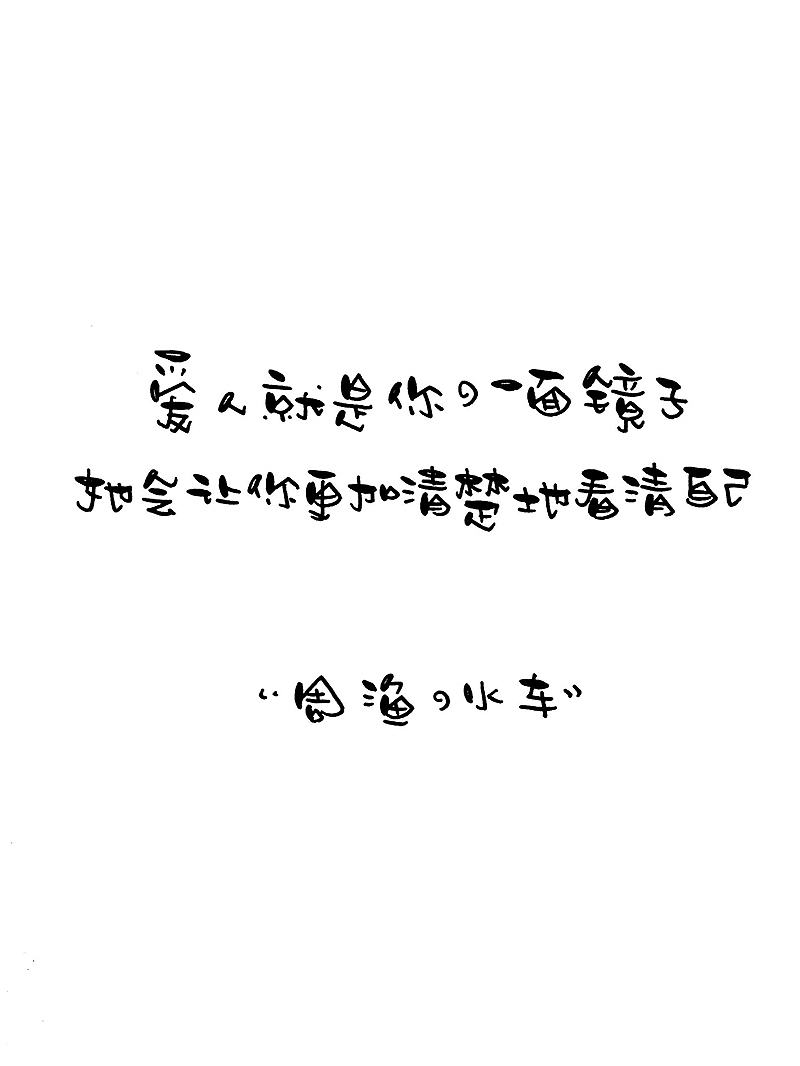 爱人就是你の一面镜子
她会让你更加清楚地看清自己
“周渔の水车”